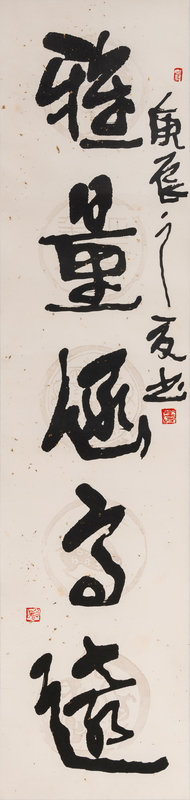 雅量涵高遠
庚辰之夏書